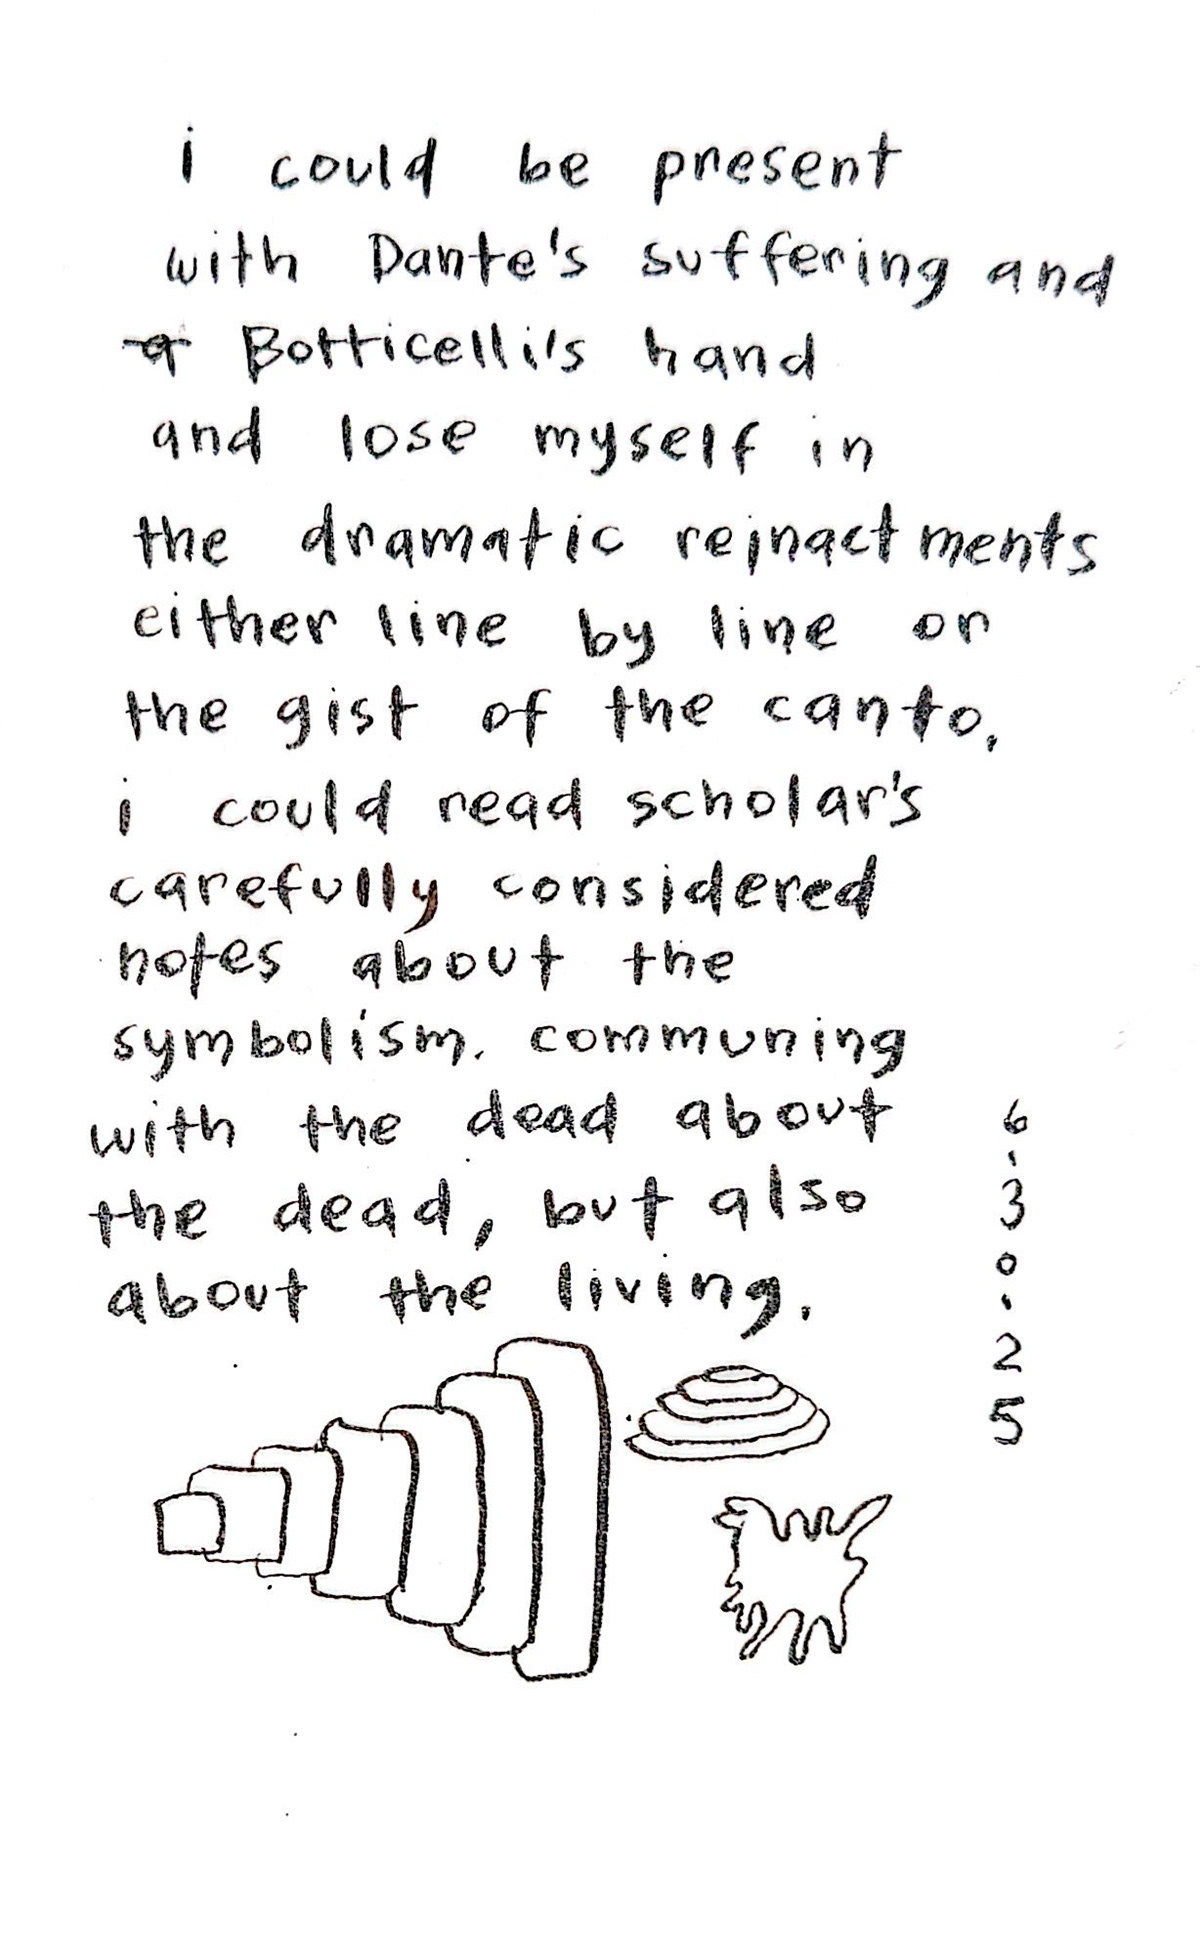 i could be present
with Dante's suffering and
a Botticelli's hand
and lose myself in
the dramatic reinactments
either line by line or
the gist of the canto.
i could read scholar's
carefully considered
notes about the
symbolism. communing
with the dead about
the dead, but also
about the living.
6.30.25